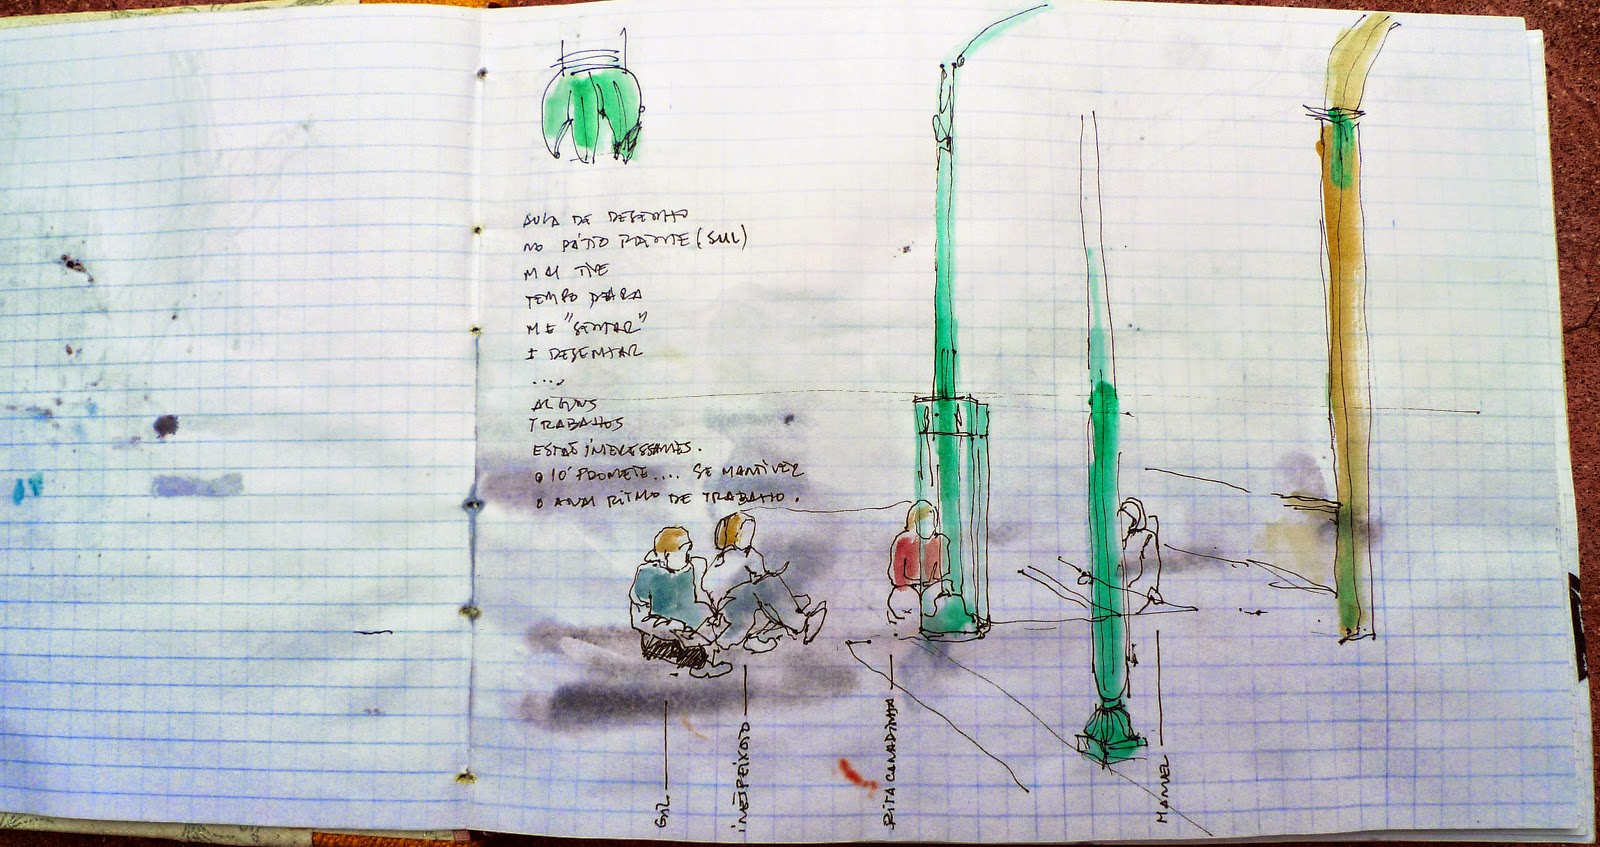 AULA DE DESENHO
NO PÁTIO (SUL)
MAL TIVE
TEMPO PARA
ME "SENTAR"
E DESENHAR
....
ALGUNS
TRABALHOS
ESTÃO INTERESSANTES.
O 10º PROMETE.... SE MANTIVER
O RITMO DE TRABALHO.
INÊS PEIXOTO
RITA CANADINHA
MANUEL